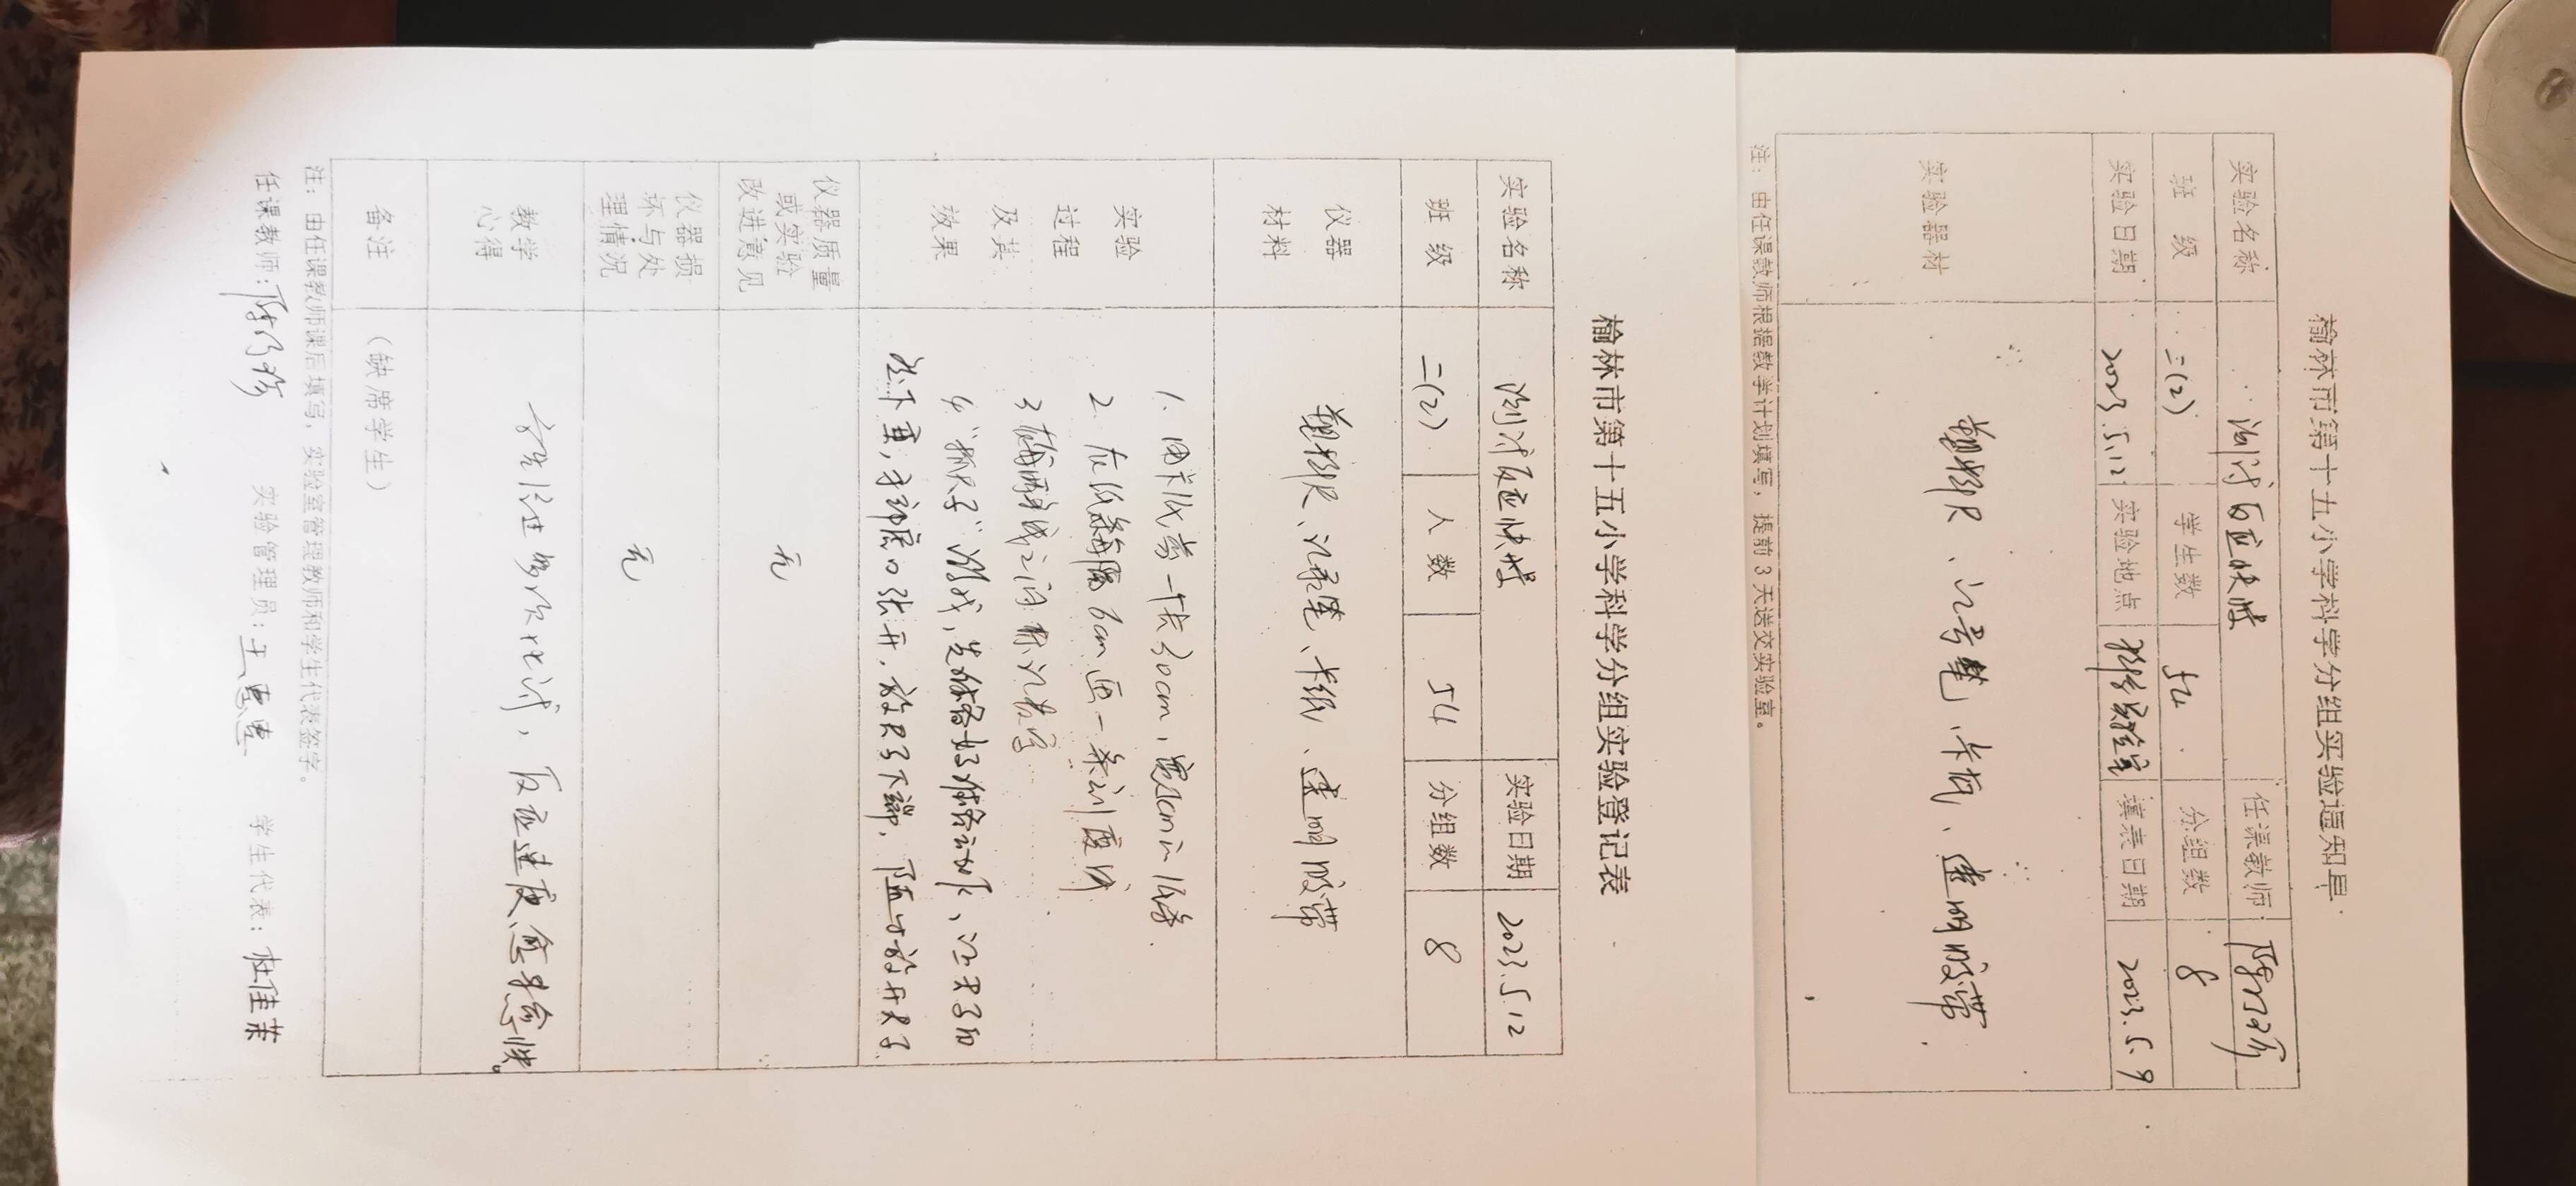 榆林市第十五小学科学分组实验通知单
实验名称 测试反应快慢 任课教师
班 级 二(2) 学生数 54 分组数 8
实验日期 2023.5.12 实验地点 科学实验室 填表日期 2023.5.9
实验器材 塑料尺、记号笔、卡纸、透明胶带
注：由任课教师根据教学计划填写，提前3天送交实验室。
榆林市第十五小学科学分组实验登记表
实验名称 测试反应快慢 实验日期 2023.5.12
班 级 二(2) 人 数 54 分组数 8
仪器
材料
塑料尺、记录笔、卡纸、透明胶带
实验
过程
及其
效果
1. 用卡纸剪一长30cm，宽 的纸条.
2. 在纸条每隔6cm画一条刻度线
3 在每两条线之间标记数字
4. “抓尺子”游戏，先做好准备动作、让尺子的
往下垂，手 虎口张开，放尺子下端， 放开尺子
仪器质量
或实验
改进意见
无
仪器损
坏与处
理情况
无
教学
心得
学生经过多次比试，反应速度会越来越快。
备注 （缺席学生）
注：由任课教师课后填写，实验室管理教师和学生代表签字。
任课教师： 实验管理员：王惠惠 学生代表：杜佳莱